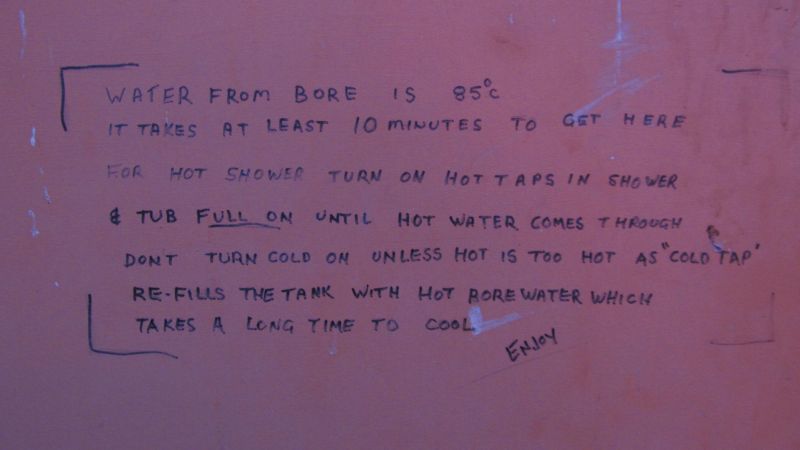 WATER FROM BORE IS 85°C
IT TAKES AT LEAST 10 MINUTES TO GET HERE
FOR HOT SHOWER TURN ON HOT TAPS IN SHOWER
& TUB FULL ON UNTIL HOT WATER COMES THROUGH
DONT TURN COLD ON UNLESS HOT IS TOO HOT AS "COLD TAP"
RE-FILLS THE TANK WITH HOT BORE WATER WHICH
TAKES A LONG TIME TO COOL
ENJOY